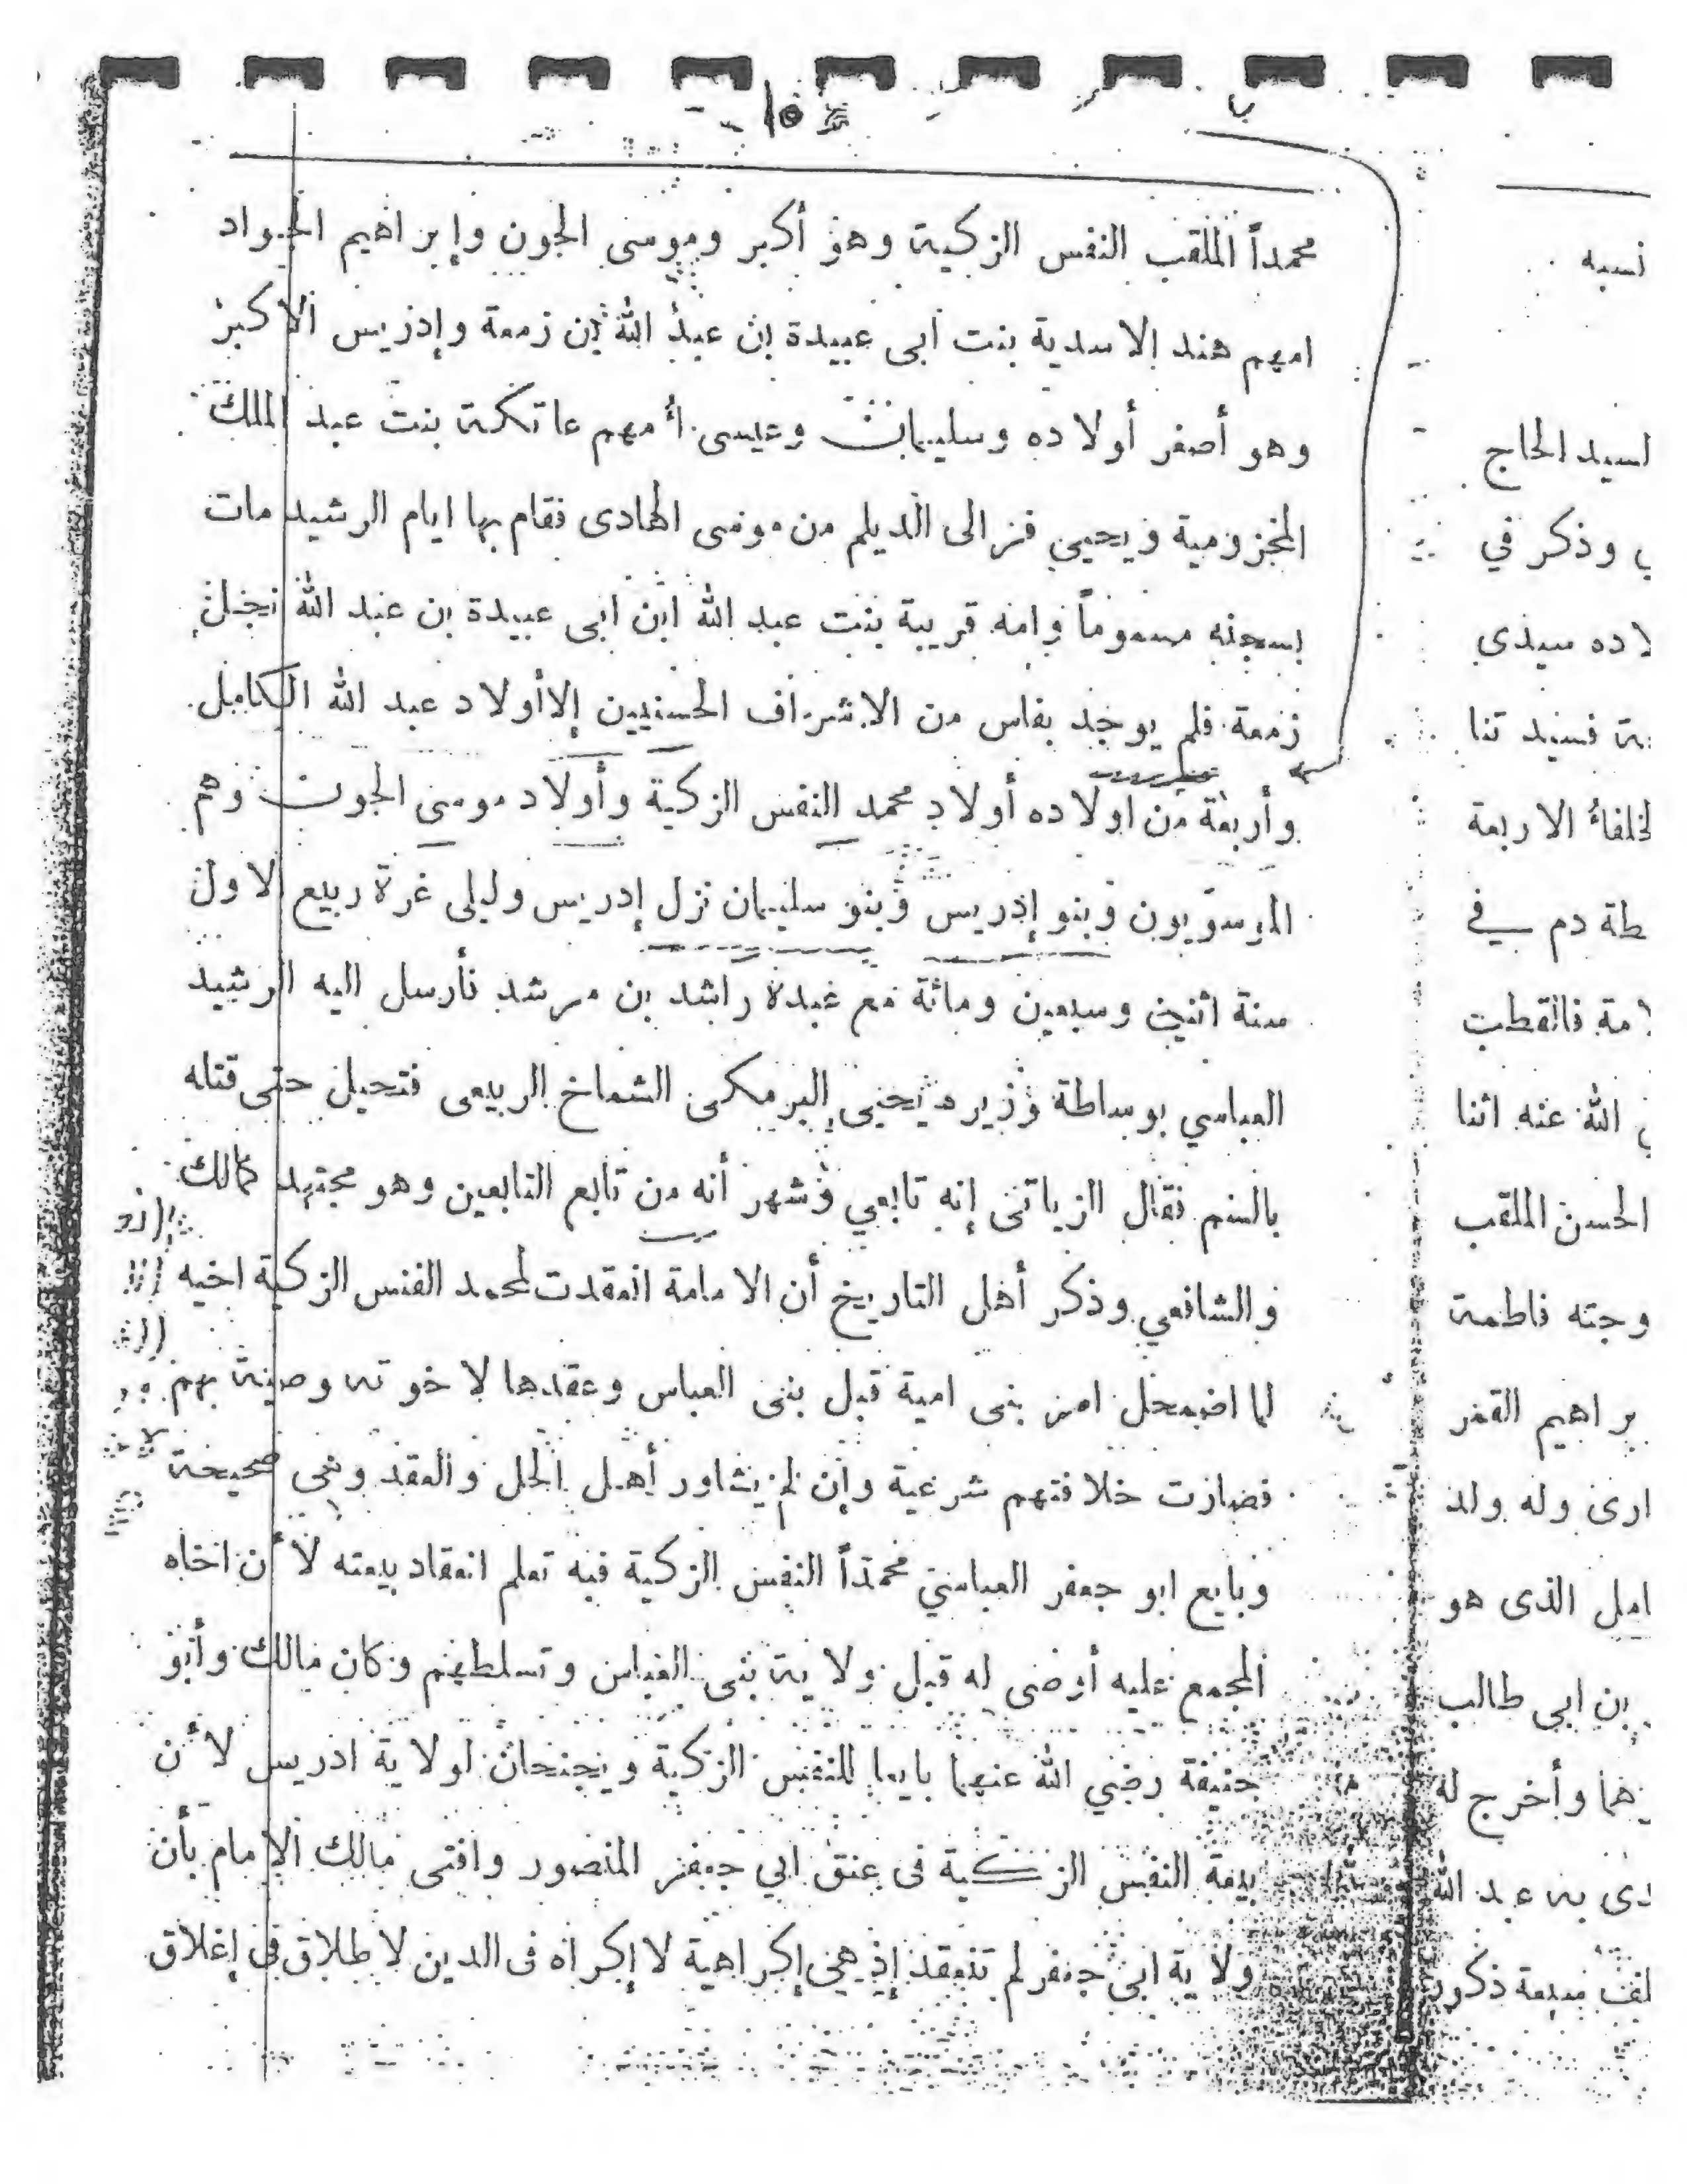 ١٥
محمداً الملقب النفس الزكية وهو أكبر وموسى الجون وإبراهيم الجواد
امهم هند الاسدية بنت ابى عبيدة بن عبد الله بن زمعة وإدريس الاكبر
وهو أصغر أولاده وسليمان وعيسى أمهم عاتكة بنت عبد الملك
المخزومية ويحيى فر الى الديلم من موسى الهادى فقام بها ايام الرشيد مات
بسجنه مسموماً وامه قريبة بنت عبد الله ابن ابى عبيدة بن عبد الله نجل
زمعة فلم يوجد بفاس من الاشراف الحسنيين إلا أولاد عبد الله الكامل
وأربعة من اولاده أولاد محمد النفس الزكية وأولاد موسى الجون وهم
الموسويون وبنو إدريس وبنو سليمان نزل إدريس وليلى غرة ربيع الاول
سنة اثنين وسبعين ومائة مع عبده راشد بن مرشد فأرسل اليه الرشيد
العباسي بوساطة وزيره يحيى البرمكى الشماخ الربيعى فتحيل حتى قتله
بالسم فقال الزياتى إنه تابعي وشهر أنه من تابع التابعين وهو مجتهد كمالك
والشافعي وذكر أهل التاريخ أن الامامة انعقدت لمحمد الفنس الزكية اخيه
لما اضمحل امر بنى امية قبل بنى العباس وعقدها لاخوته وصية بهم
فصارت خلافتهم شرعية وإن لم يشاور أهل الحل والعقد وهى صحيحة
وبايع ابو جعفر العباسي محمداً النفس الزكية فبه تعلم انعقاد بيعته لأن اخاه
المجمع عليه أوصى له قبل ولاية بنى العباس وتسلطهم وكان مالك وأبو
حنيفة رضي الله عنهما بايعا للنفس الزكية ويجنحان لولاية ادريس لأن
بيعة النفس الزكية فى عنق ابي جعفر المنصور وافتى مالك الامام بأن
ولاية ابى جعفر لم تنعقد إذ هى إكراهية لا إكراه فى الدين لا طلاق في إغلاق
نسبه
لسيد الحاج
وذكر في
لاده سيدى
فسيد تنا
لخلفاء الاربعة
طة دم في
لامة فالتقطت
الله عنه اثنا
الحسن الملقب
وجته فاطمة
براهيم القمر
ارى وله ولد
امل الذى هو
بن ابى طالب
هما وأخرج له
دى به عبد الله
لف سبعة ذكور